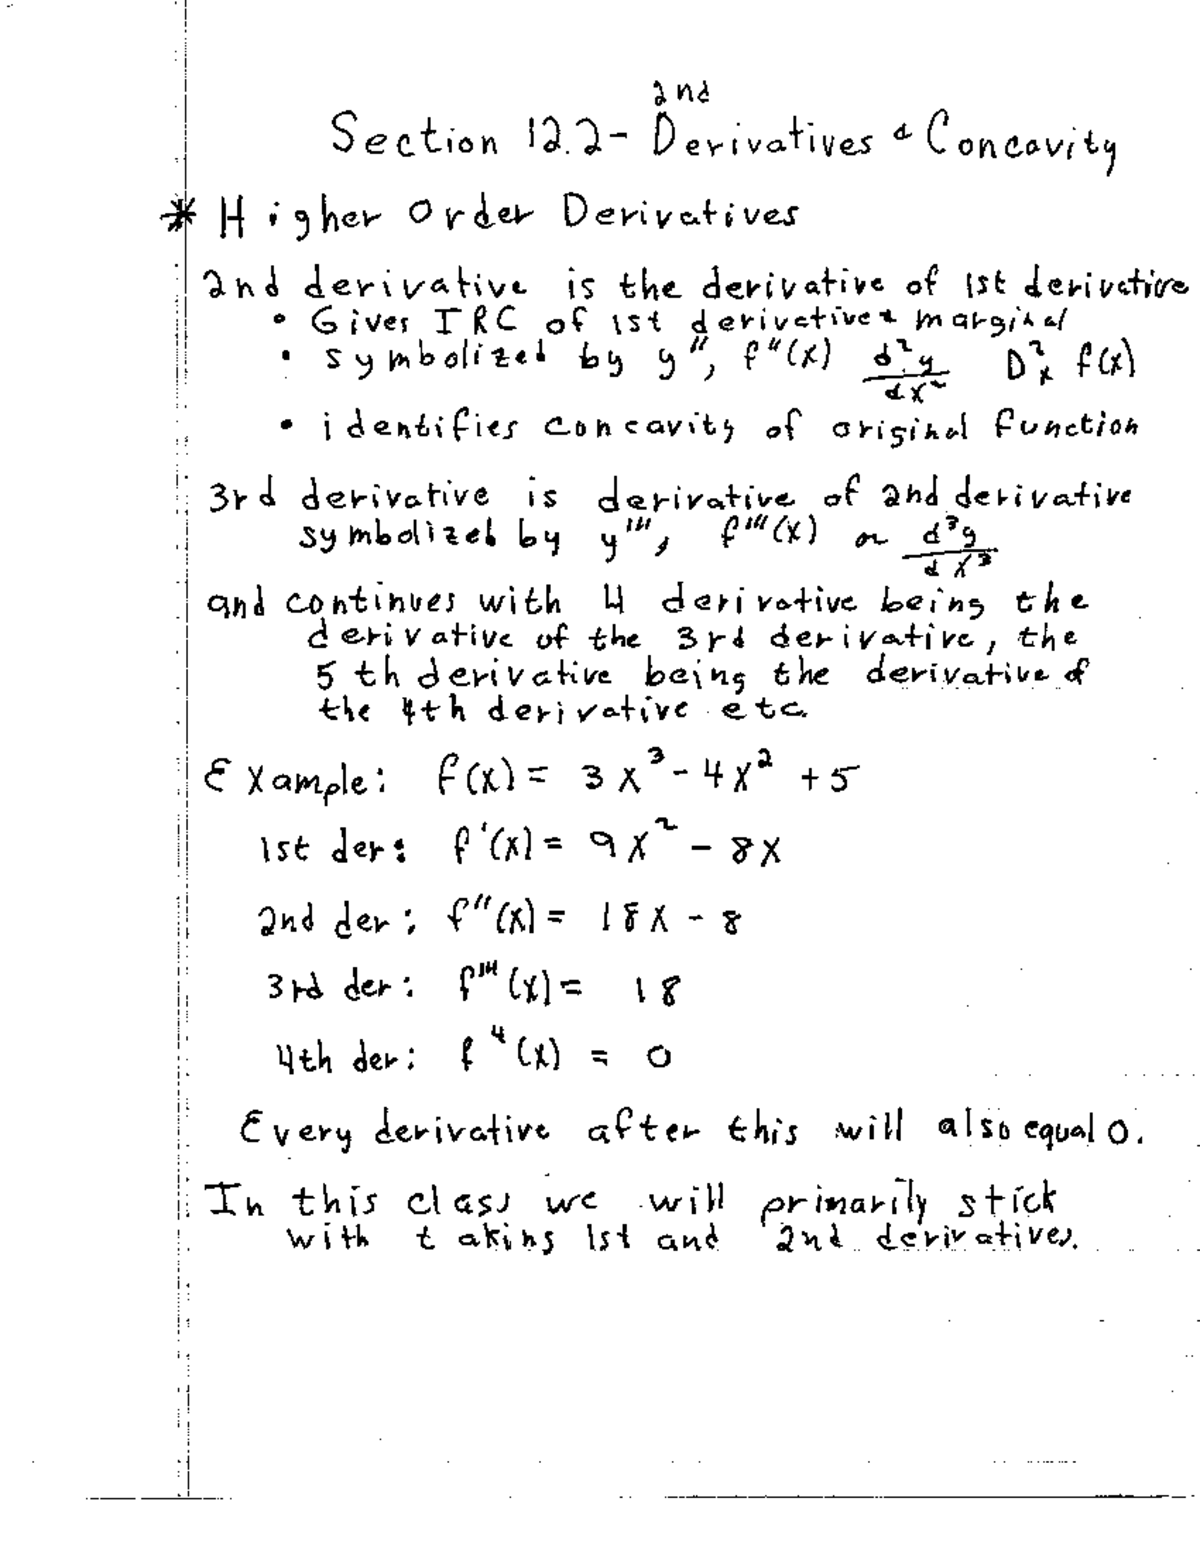 Section 12.2- 2nd Derivatives & Concavity
* Higher Order Derivatives
2nd derivative is the derivative of 1st derivative
• Gives IRC of 1st derivative & marginal
• symbolized by y", f"(x) d²y/dx² D²ₓ f(x)
• identifies concavity of original function
3rd derivative is derivative of 2nd derivative
symbolized by y''', f'''(x) or d³y/dx³
and continues with 4 derivative being the
derivative of the 3rd derivative, the
5th derivative being the derivative of
the 4th derivative etc.
Example: f(x) = 3x³ - 4x² + 5
1st der: f'(x) = 9x² - 8x
2nd der: f"(x) = 18x - 8
3rd der: f'''(x) = 18
4th der: f⁴(x) = 0
Every derivative after this will also equal 0.
In this class we will primarily stick
with taking 1st and 2nd derivatives.